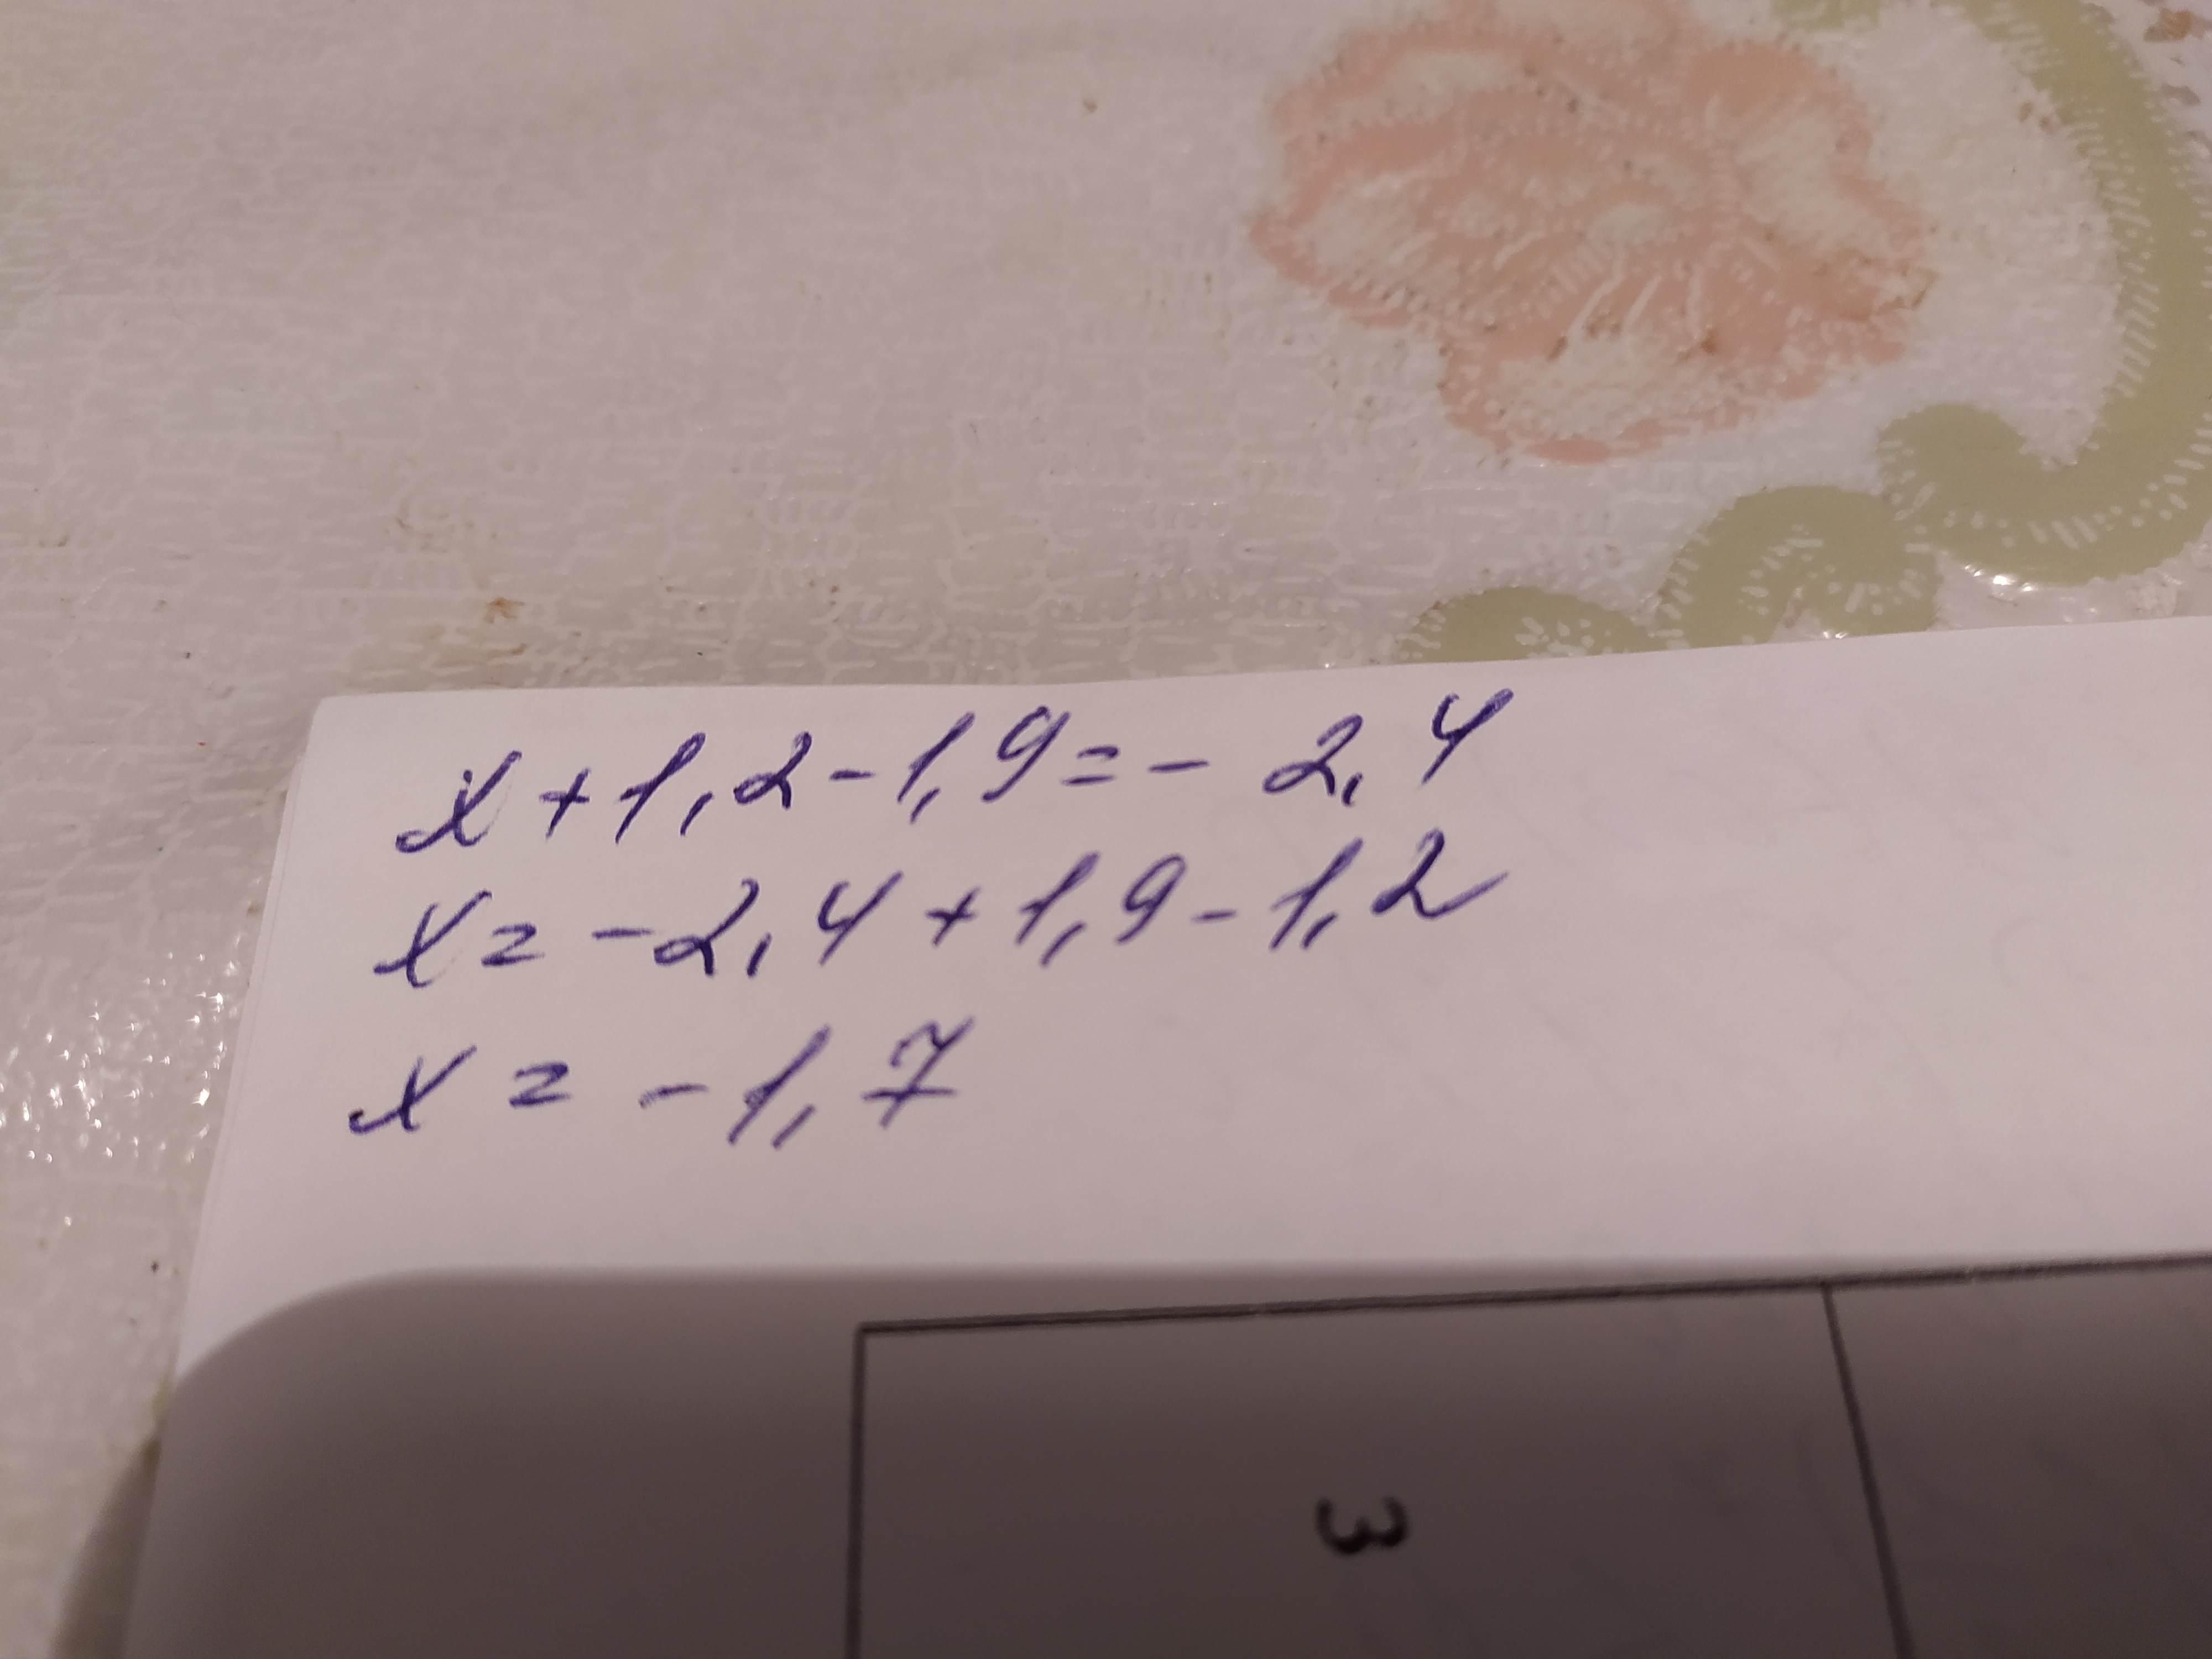 x + 1,2 - 1,9 = - 2,4
x = - 2,4 + 1,9 - 1,2
x = - 1,7
3